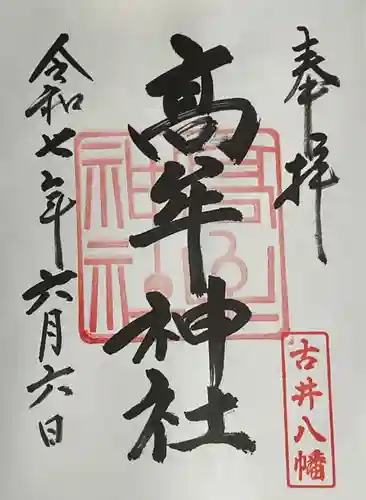 奉拝
高牟神社
古井八幡
令和七年六月六日